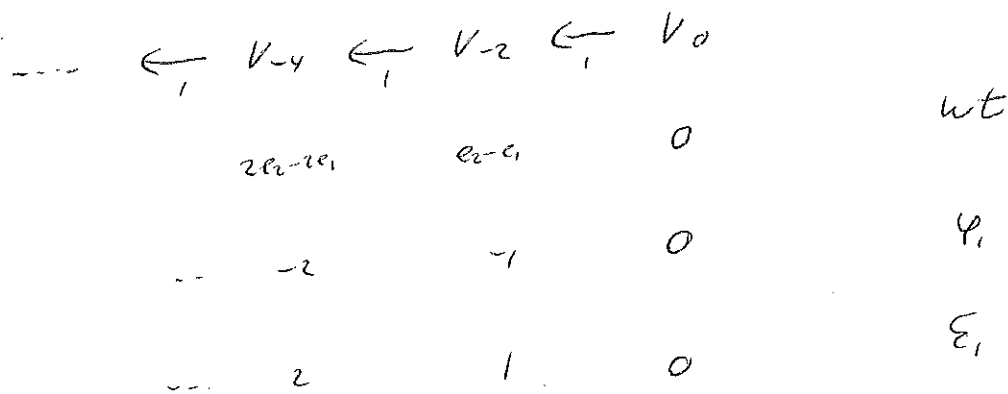 ---- ←₁ V₋₄ ←₁ V₋₂ ←₁ V₀
2e₂-2e₁ e₂-e₁ 0 wt
-- -2 -1 0 φ₁
--- 2 1 0 ε₁